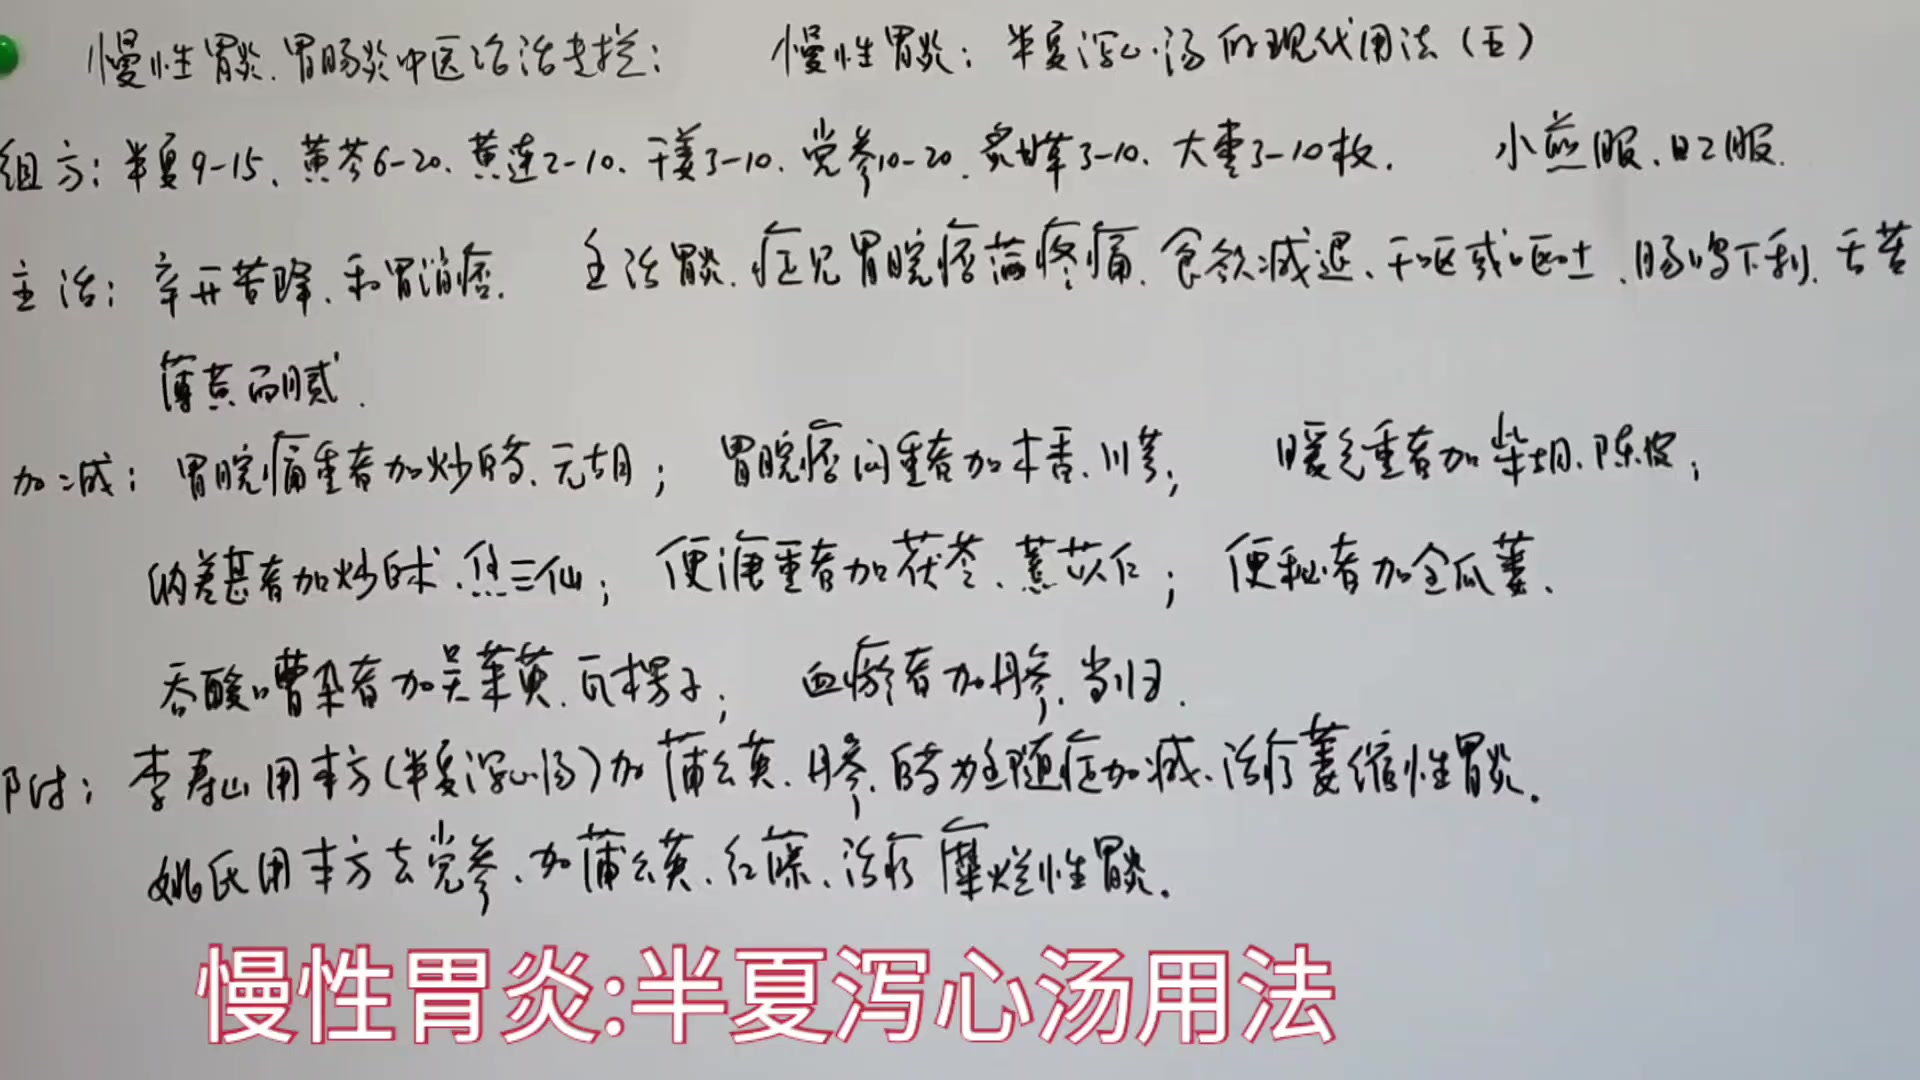 慢性胃炎.胃肠炎中医治法专栏: 慢性胃炎:半夏泻心汤的现代用法(五)
组方:半夏9-15、黄芩6-20、黄连2-10、干姜3-10、党参10-20、炙甘草3-10、大枣3-10枚. 水煎服、日2服.
主治:辛开苦降、和胃消痞. 主治胃炎.症见胃脘痞满疼痛.食欲减退、干呕或呕吐、肠鸣下利.舌苔
薄黄而腻.
加减:胃脘痛重者加炒白芍、元胡; 胃脘痞闷重者加木香、川芎; 嗳气重者加柴胡.陈皮;
纳差甚者加炒白术.焦三仙; 便溏重者加茯苓、薏苡仁; 便秘者加全瓜蒌.
吞酸嘈杂者加吴茱萸.瓦楞子; 血瘀者加丹参.当归.
附:李寿山用本方(半夏泻心汤)加蒲公英.丹参.白芍为主随症加减.治疗萎缩性胃炎.
姚氏用本方去党参、加蒲公英.红藤、治疗糜烂性胃炎.
慢性胃炎:半夏泻心汤用法